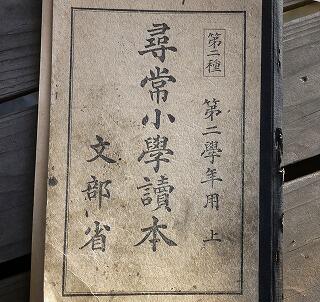 第二種
第二學年用 上
尋常小學讀本
文部省